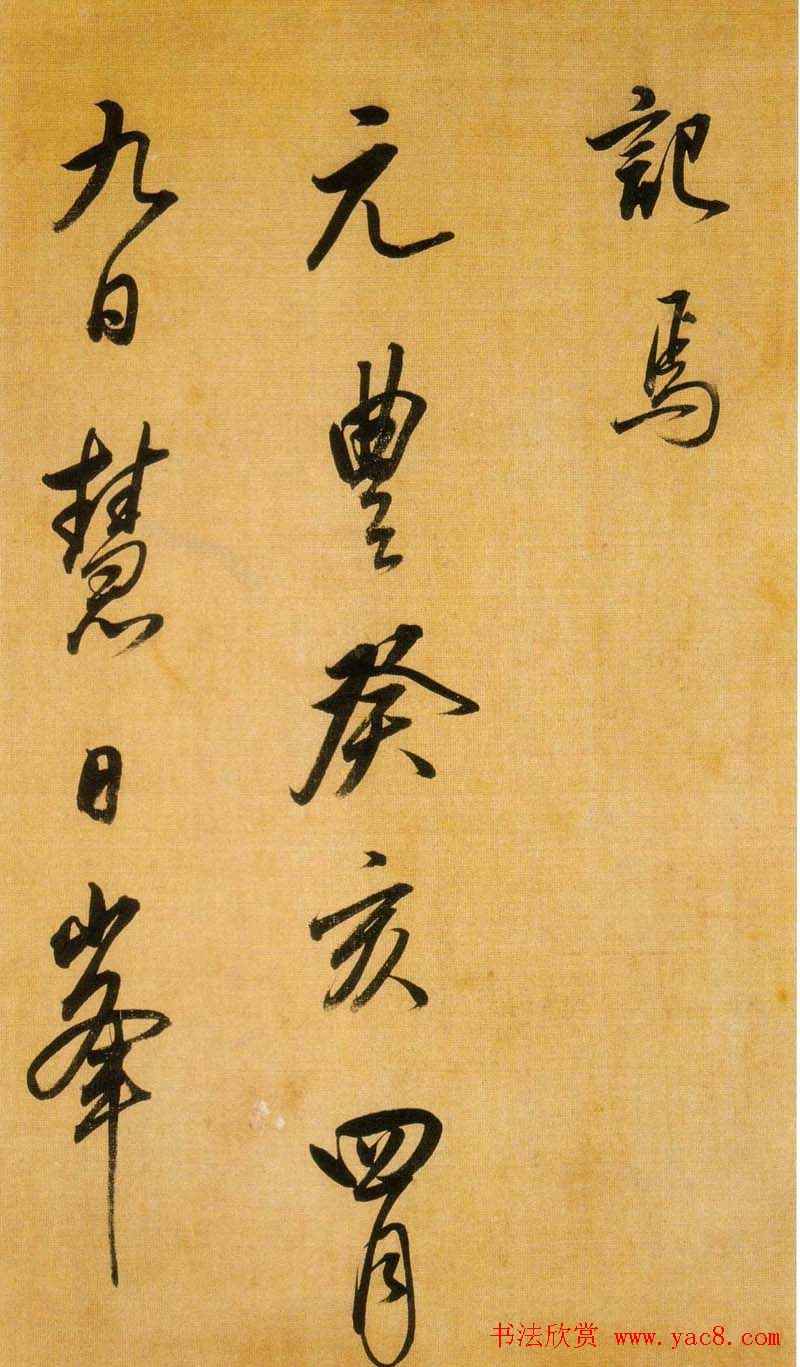 記焉
元豊癸亥四月
九日慧日峯
书法欣赏 www.yac8.com